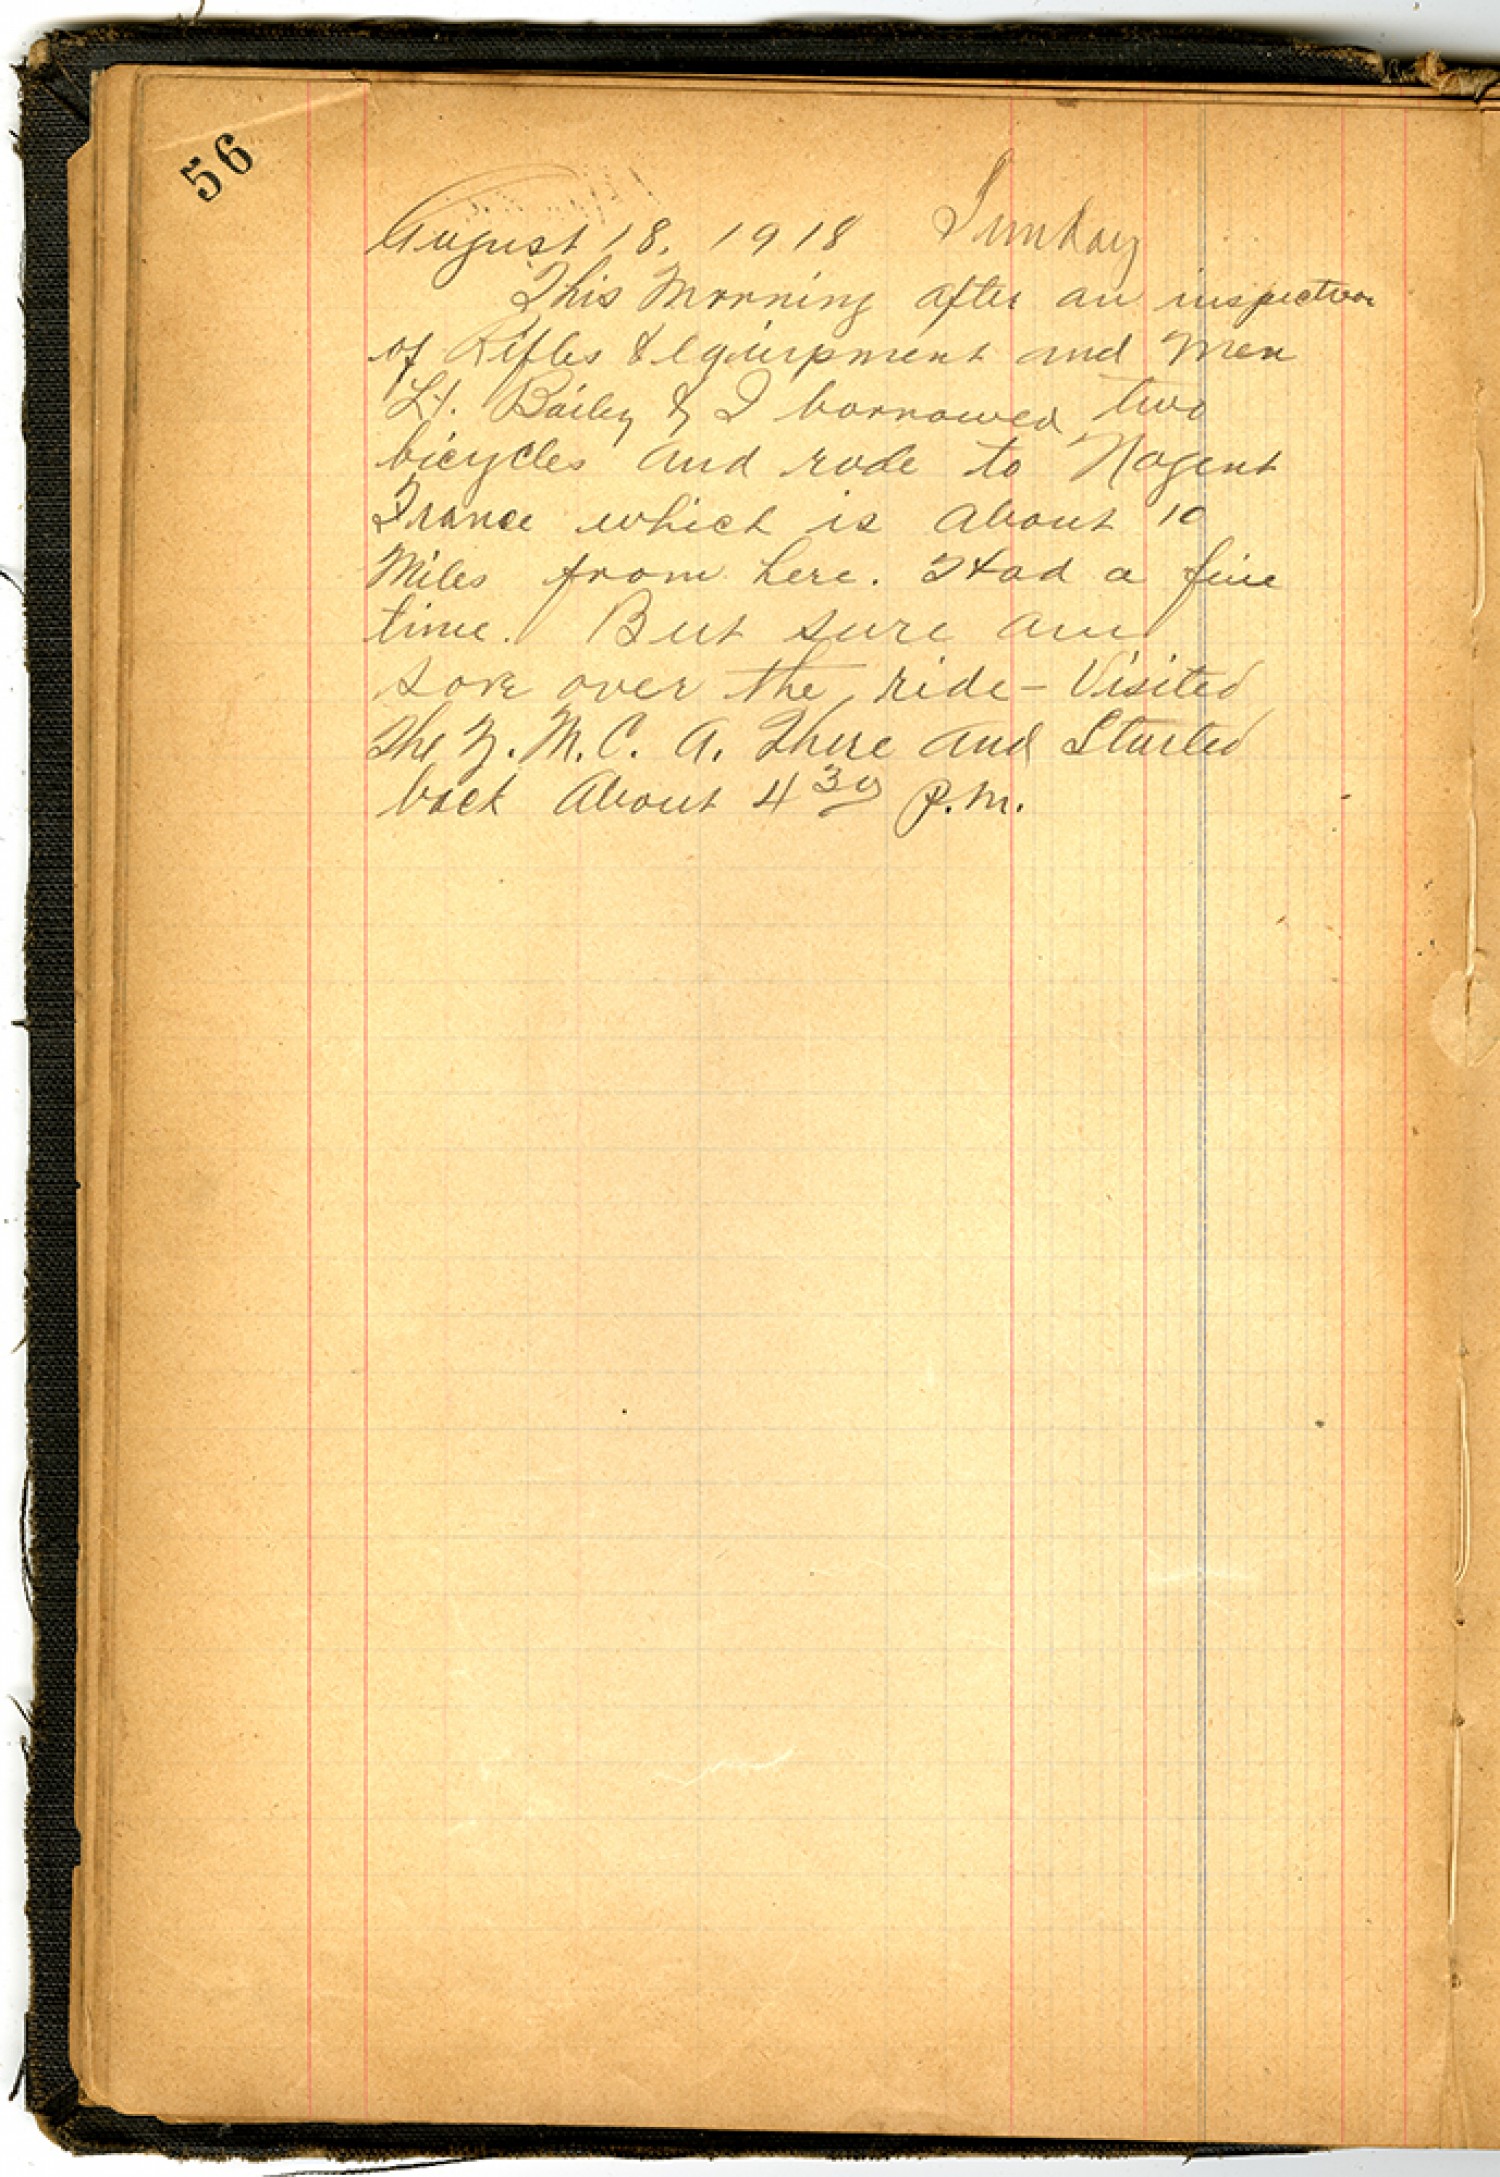 56
August 18, 1918 Sunday
This Morning after an inspection
of Rifles & Equipment and Men
Lt. Bailey & I borrowed two
bicycles and rode to Nogent
France which is about 10
Miles from here. Had a fine
time. But sure am
sore over the ride - Visited
the Y.M.C.A. There and Started
back About 4 30 P.M.